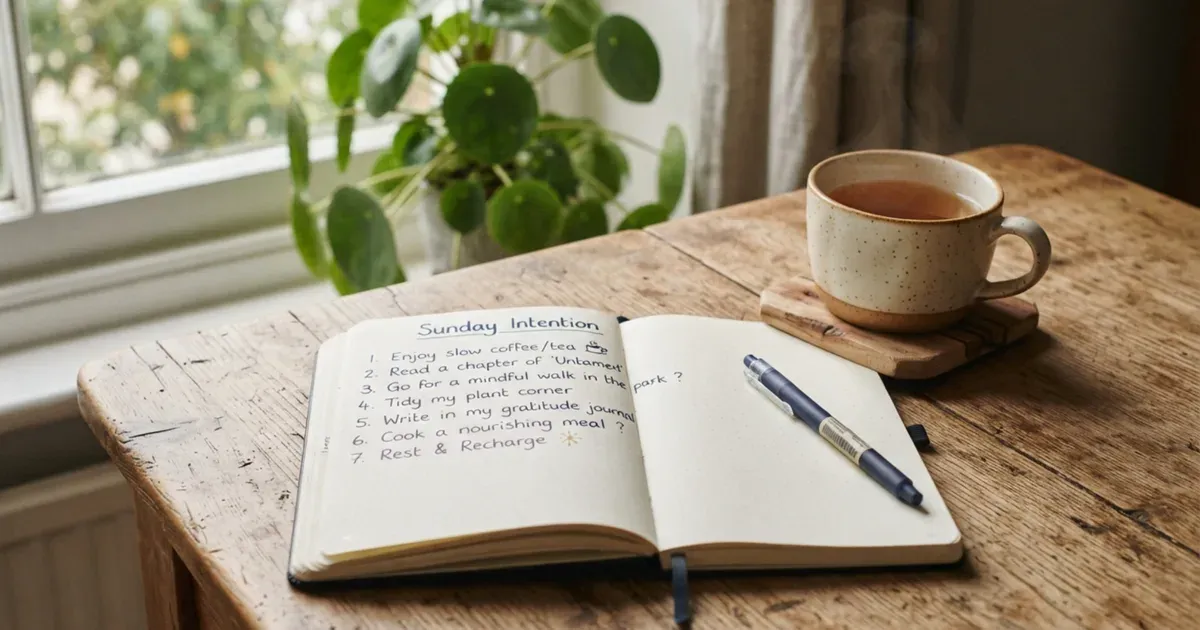 Sunday Intention
1. Enjoy slow coffee/tea
2. Read a chapter of 'Untamed'
3. Go for a mindful walk in the park ?
4. Tidy my plant corner
5. Write in my gratitude journal
6. Cook a nourishing meal ?
7. Rest & Recharge